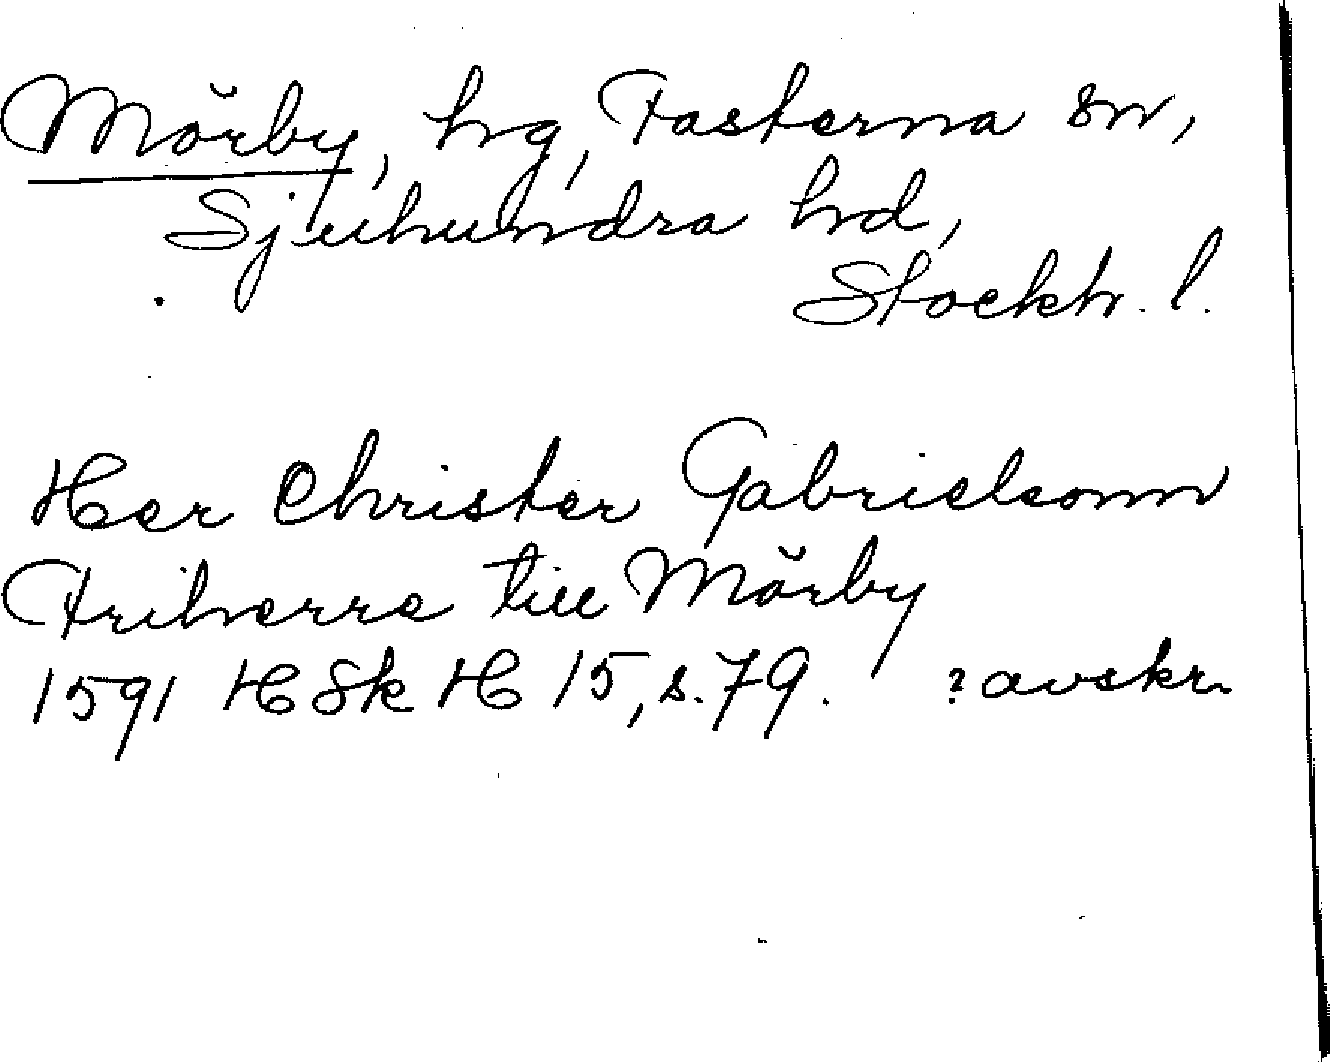 Mörby, hg, Fasterna sn,
Sjuhundra hd,
Stockh. l.
Her Christer Gabrielsonn
Friherre till Mörby
1591 HSkH 15, s. 79. ? avskr.